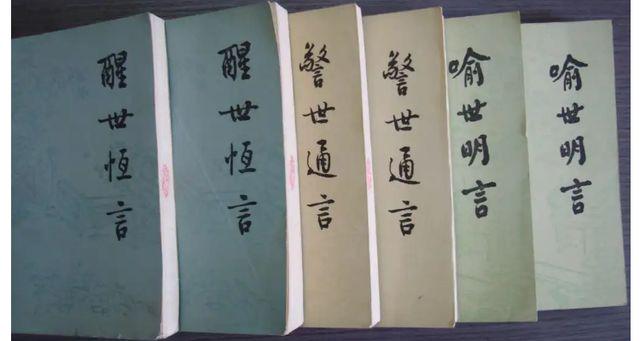 喻世明言
喻世明言
警世通言
警世通言
醒世恆言
醒世恆言